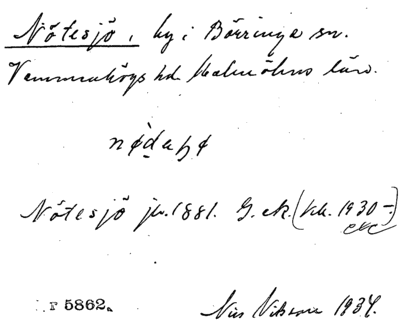 Nötesjö, by i Börringe sn.
Vemmenhögs hd. Malmöhus län.
Nötesjö jb. 1881. G. ek. (kb. 1930 -)
F 5862.
Nils Nilsson 1934.